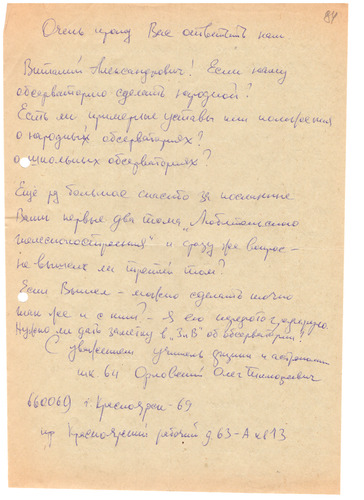 84
Очень прошу Вас ответить нам
Виталий Александрович! Если нашу
обсерваторию сделать народной?
Есть ли примерные уставы или положения
о народных обсерваториях?
о школьных обсерваториях?
Ещё раз большое спасибо за посланные
Вами первые два тома „Любительского
телескопостроения" и сразу же вопрос –
не вышел ли третий том?
Если вышел – можно сделать точно
так же и с ним. – Я его передаю
Нужно ли дать заметку в "ЗиВ" об обсерватории?
С уважением учитель физики и астрономии
шк 64 Орловский Олег Тимофеевич
660069 г. Красноярск – 69
пр Красноярский рабочий д 63-А кв 13